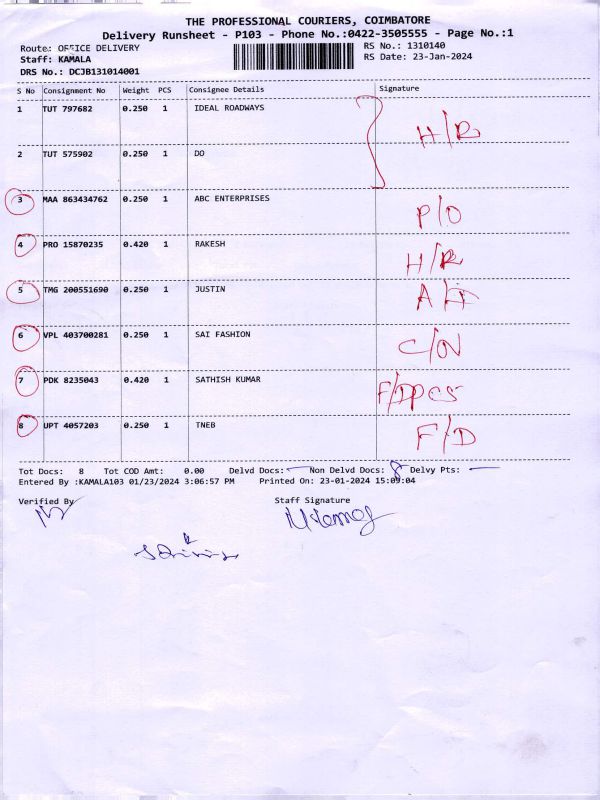 THE PROFESSIONAL COURIERS, COIMBATORE
Delivery Runsheet - P103 - Phone No.:0422-3505555 - Page No.:1
Route: OFFICE DELIVERY RS No.: 1310140
Staff: KAMALA RS Date: 23-Jan-2024
DRS No.: DCJB131014001
S No Consignment No Weight PCS Consignee Details Signature
1 TUT 797682 0.250 1 IDEAL ROADWAYS
H/R
2 TUT 575902 0.250 1 DO
3 MAA 863434762 0.250 1 ABC ENTERPRISES P/O
4 PRO 15870235 0.420 1 RAKESH H/R
5 TMG 200551690 0.250 1 JUSTIN
6 VPL 403700281 0.250 1 SAI FASHION C/N
7 PDK 8235043 0.420 1 SATHISH KUMAR
8 UPT 4057203 0.250 1 TNEB F/D
Tot Docs: 8 Tot COD Amt: 0.00 Delvd Docs: — Non Delvd Docs: 8 Delvy Pts: —
Entered By :KAMALA103 01/23/2024 3:06:57 PM Printed On: 23-01-2024 15:09:04
Verified By Staff Signature